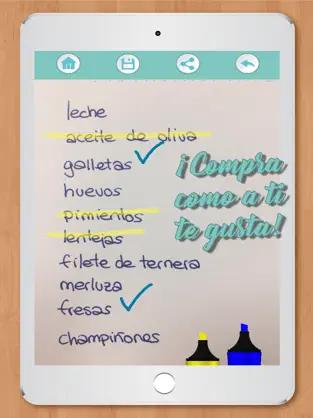 leche
aceite de oliva
galletas
huevos
pimientos
lentejas
filete de ternera
merluza
fresas
champiñones
¡Compra
como a ti
te gusta!